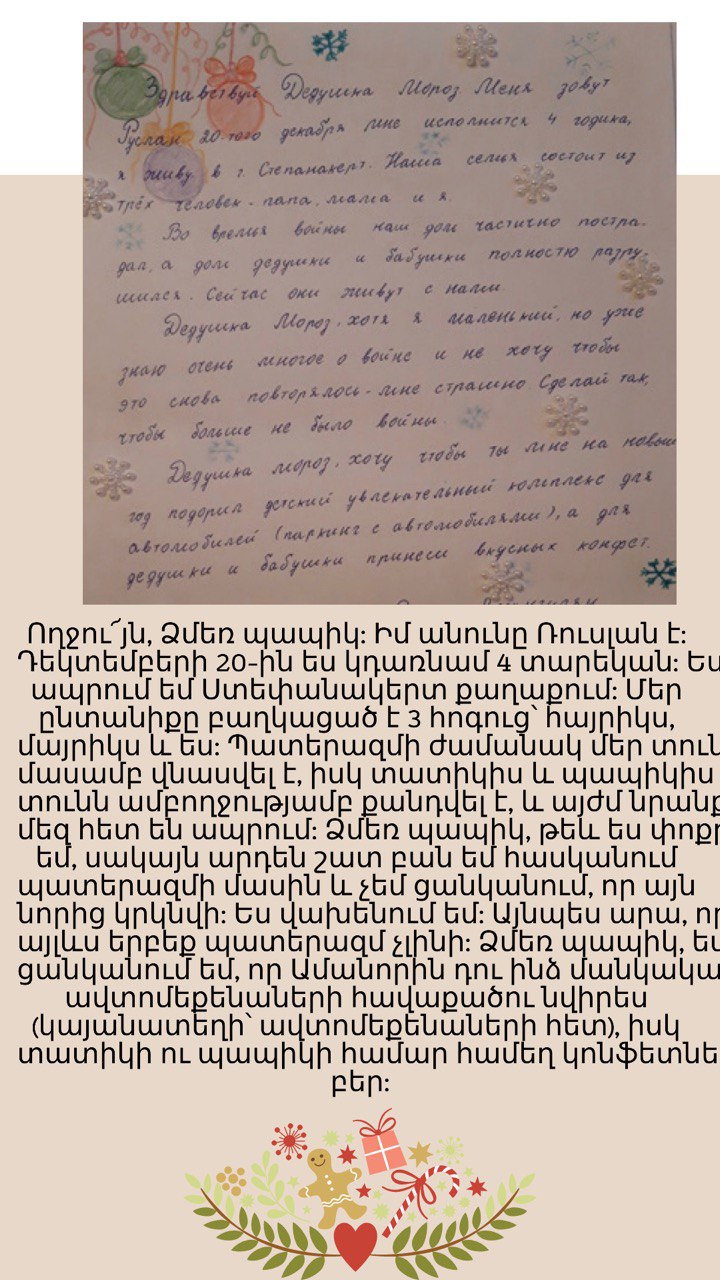 Здравствуй Дедушка Мороз Меня зовут
Руслан 20-того декабря мне исполнится 4 годика,
я живу в г. Степанакерт. Наша семья состоит из
трёх человек - папа, мама и я.
Во время войны наш дом частично постра-
дал, а дом дедушки и бабушки полностю разру-
шился. Сейчас они живут с нами.
Дедушка Мороз, хотя я маленький, но уже
знаю очень многое о войне и не хочу чтобы
это снова повторялось - мне страшно Сделай так,
чтобы больше не было войны.
Дедушка мороз, хочу чтобы ты мне на новый
год подорил детский увлекательный комплекс для
автомобилей (паркинг с автомобилями), а для
дедушки и бабушки принеси вкусных конфет.
Ողջու՜յն, Ձմեռ պապիկ: Իմ անունը Ռուսլան է:
Դեկտեմբերի 20-ին ես կդառնամ 4 տարեկան: Ես
ապրում եմ Ստեփանակերտ քաղաքում: Մեր
ընտանիքը բաղկացած է 3 հոգուց՝ հայրիկս,
մայրիկս և ես: Պատերազմի ժամանակ մեր տուն
մասամբ վնասվել է, իսկ տատիկիս և պապիկիս
տունն ամբողջությամբ քանդվել է, և այժմ նրանք
մեզ հետ են ապրում: Ձմեռ պապիկ, թեև ես փոքր
եմ, սակայն արդեն շատ բան եմ հասկանում
պատերազմի մասին և չեմ ցանկանում, որ այն
նորից կրկնվի: Ես վախենում եմ: Այնպես արա, որ
այլևս երբեք պատերազմ չլինի: Ձմեռ պապիկ, ես
ցանկանում եմ, որ Ամանորին դու ինձ մանկակա
ավտոմեքենաների հավաքածու նվիրես
(կայանատեղի՝ ավտոմեքենաների հետ), իսկ
տատիկի ու պապիկի համար համեղ կոնֆետնե
բեր: